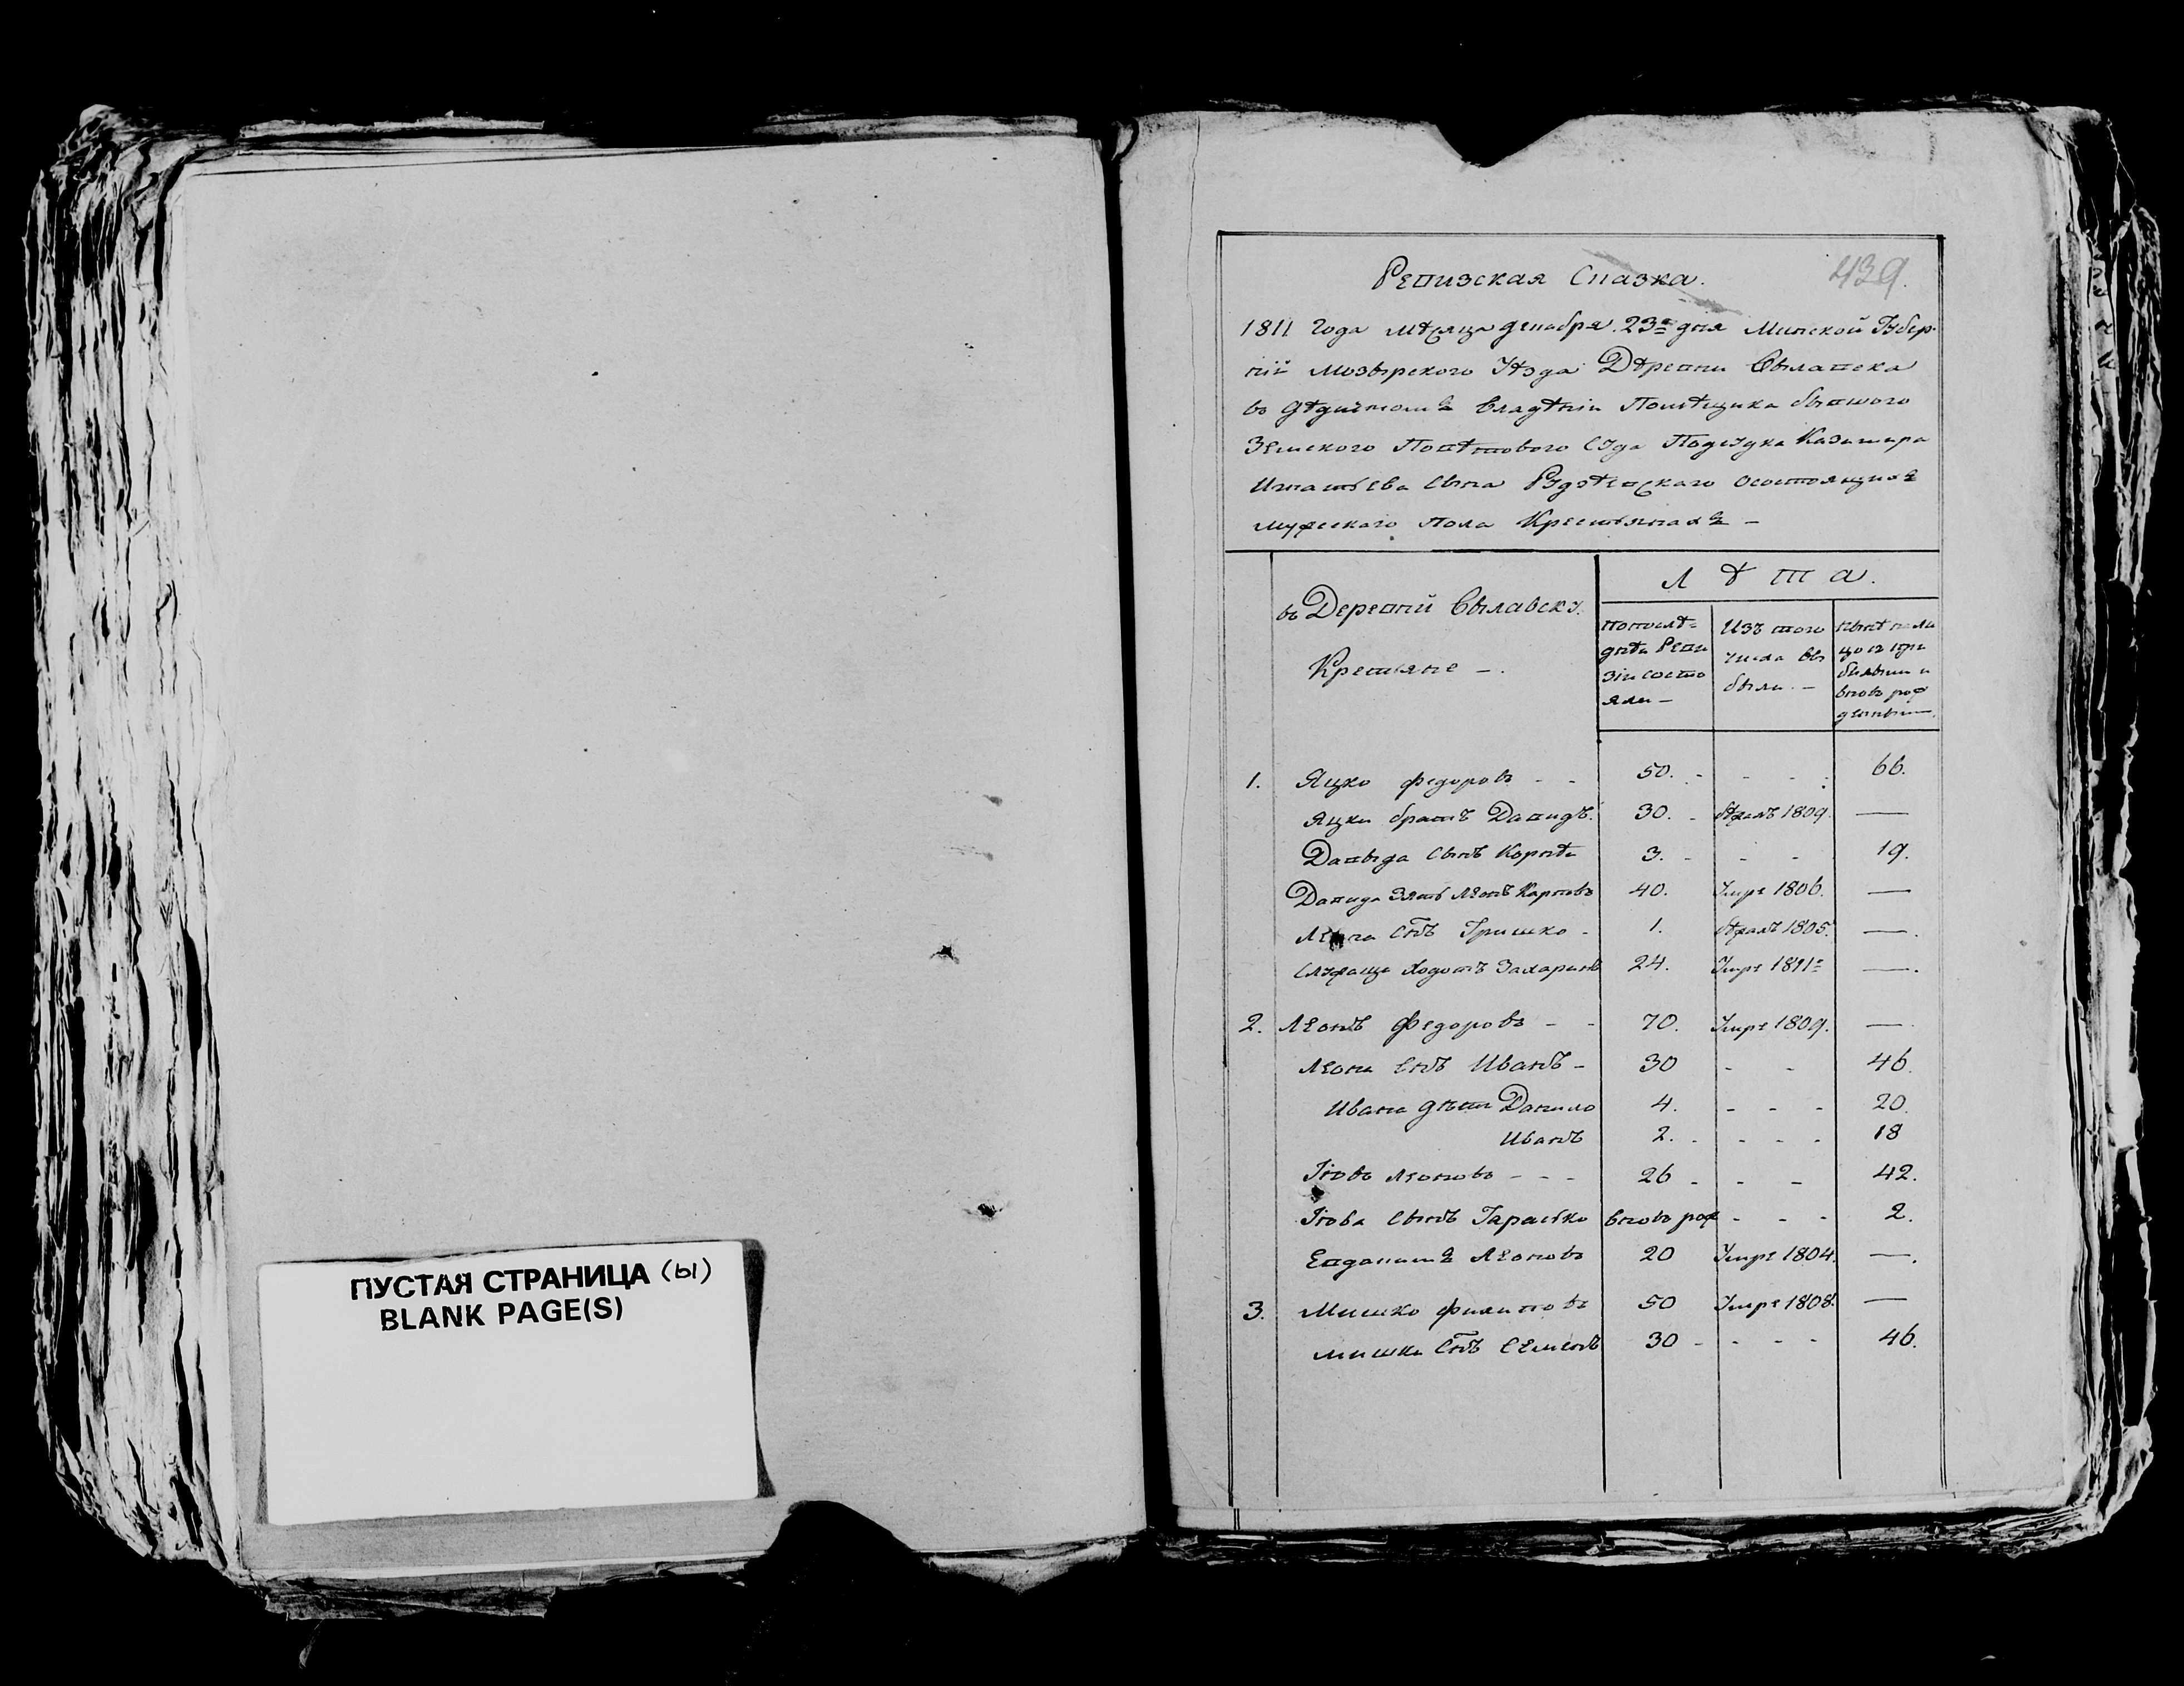 ПУСТАЯ СТРАНИЦА (ы)
BLANK PAGE(S)
Ревизская Сказка. 439.
1811 года мѣсяца декабря 23го дня Минской Губер-
нiй Мозырского Уѣзда Дѣревни
въ Владѣнiи Помѣщика бывшого
Земского Повѣтового Суда Подсудка Казимира
Игнатьева Сына осостоящихъ
мужеского пола Крестьянахъ —
въ Деревнй
Крестьяне —.
Лѣта.
попослѣ-
днѣи Реви
зiи состо
яли —
Изъ того
числа вы
были. —
нынѣ нали
цо со при
бывшими и
вновь рож
денными
1. Яцко Федоровъ - - 50. - - - 66.
Яцки братъ Давидъ. 30. - бѣжалъ 1809. —
Давыда Сынъ Корнѣи 3. - - - 19.
Давида Зять Леонъ Карповъ 40. Умре 1806. —
Леона Снъ Гришко - 1. бѣжалъ 1805. —.
Ходотъ 24. Умре 1811г —.
2. Леонъ Федоровъ - - 70. Умре 1809. —
Леона Снъ Иванъ - 30 - - 46.
Ивана дѣти Данило 4. - - - 20.
Иванъ 2. - - - - 18
Iовъ Леоновъ - - - 26 - - - 42.
Iова Сынъ Гарасько вновь рож - - - 2.
Евдакимъ Леоновъ 20 Умре 1804. —.
3. Мишко Филиповъ 50 Умре 1808. —
мишки Снъ Семенъ 30 - - - - 46.